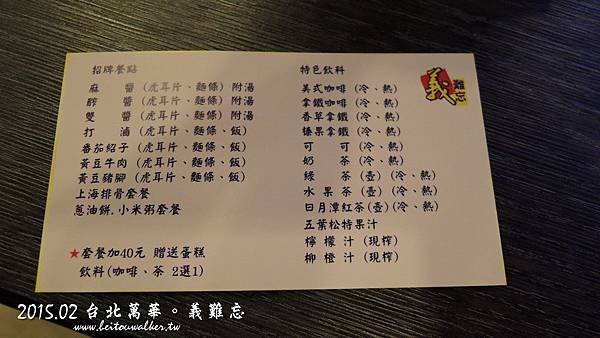 招牌餐點
麻 醬 (虎耳片、麵條) 附湯
醡 醬 (虎耳片、麵條) 附湯
雙 醬 (虎耳片、麵條) 附湯
打 滷 (虎耳片、麵條、飯)
番茄紹子 (虎耳片、麵條、飯)
黃豆牛肉 (虎耳片、麵條、飯)
黃豆豬腳 (虎耳片、麵條、飯)
上海排骨套餐
蔥油餅.小米粥套餐
★套餐加40元 贈送蛋糕
飲料(咖啡、茶 2選1)
特色飲料
美式咖啡 (冷、熱)
拿鐵咖啡 (冷、熱)
香草拿鐵 (冷、熱)
榛果拿鐵 (冷、熱)
可 可 (冷、熱)
奶 茶 (冷、熱)
綠 茶 (壺) (冷、熱)
水 果 茶 (壺) (冷、熱)
日月潭紅茶(壺)(冷、熱)
五葉松特果汁
檸 檬 汁 (現榨)
柳 橙 汁 (現榨)
義難忘
2015.02 台北萬華。義難忘
www.beitouwalker.tw